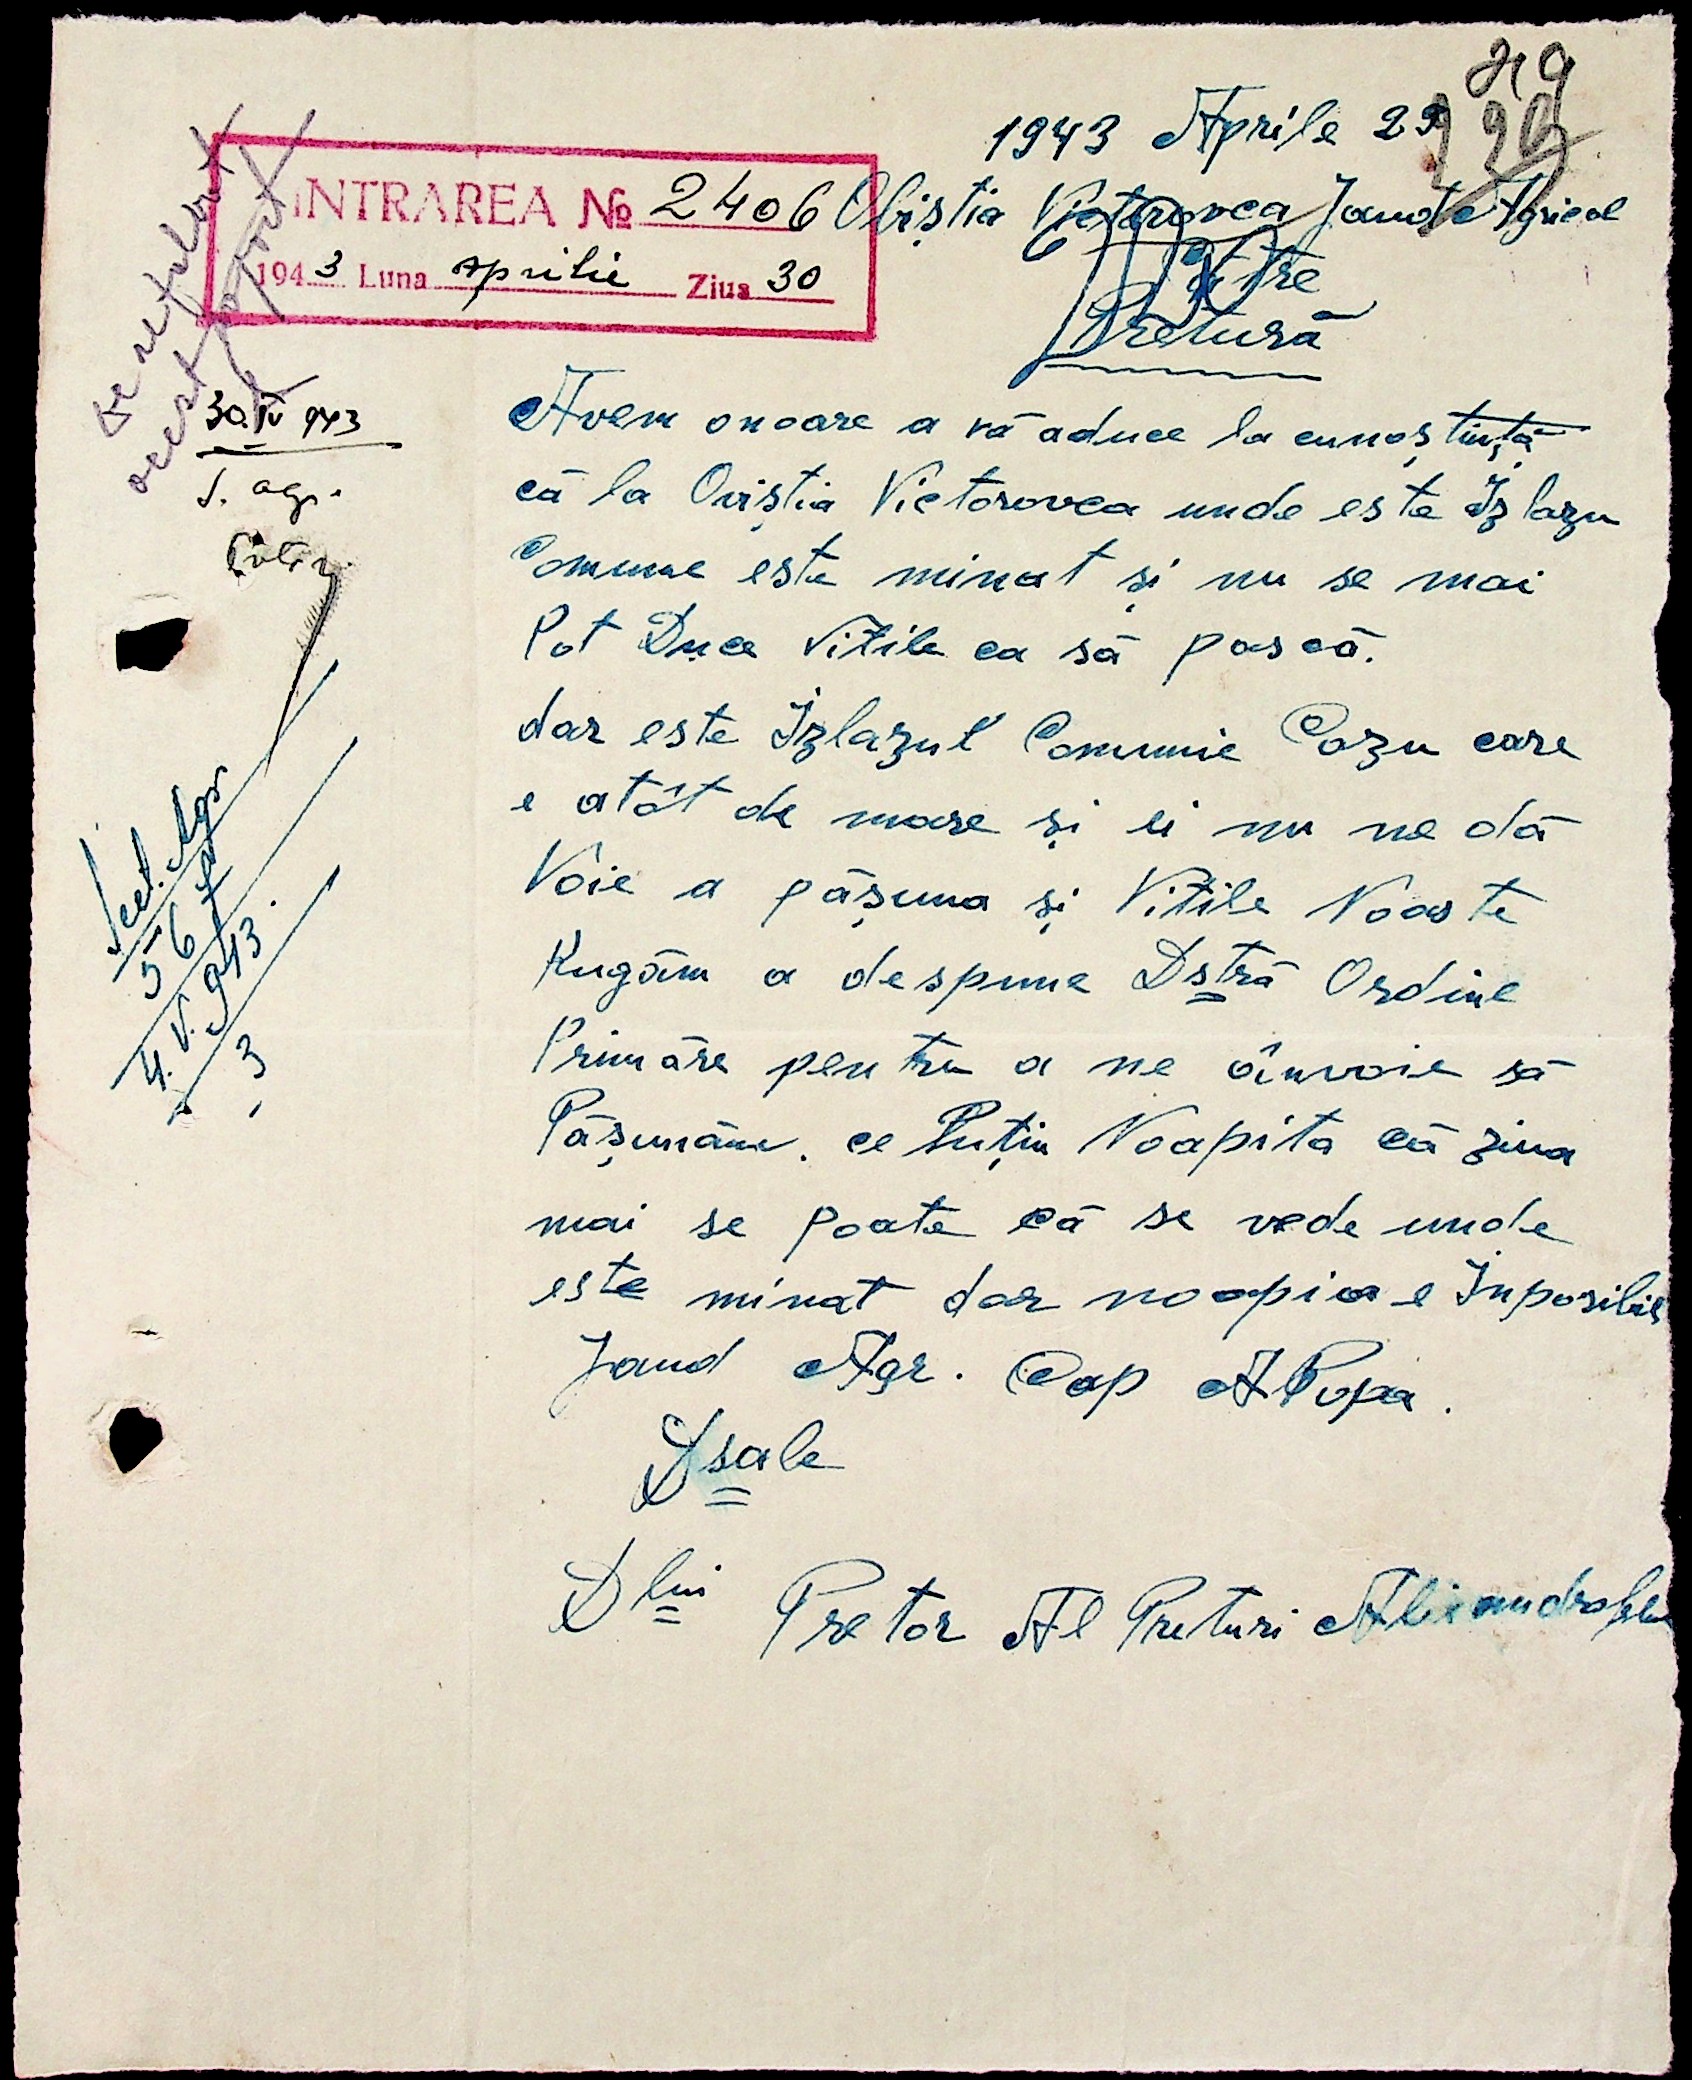 1943 Aprile 29
INTRAREA № 2406
1943 Luna Aprilie Ziua 30
Obiștia Victorovca Jand Agricol
Către
Pretură
30.IV 943
S. agr.
Avem onoare a vă aduce la cunoștință
că la Oviștia Victorovca unde este Izlazu
Comune este minat și nu se mai
Pot Duce Vitile ca să pască.
dar este Izlazul Comunie Cazu care
e atât de mare și ei nu ne dă
Voie a pășuna și Vitile Noaste
Rugăm a despune Dstră Ordine
Primăre pentru a ne învoie să
Pășunăm. ce Puțin Noapita că ziua
mai se poate că se vede unde
este minat dar noapia e Inposibil
Jand Agr. Cap A Popa.
Dsale
Dlui Pretor Al Preturi
Sect. Agr
56
4.V.943.
3